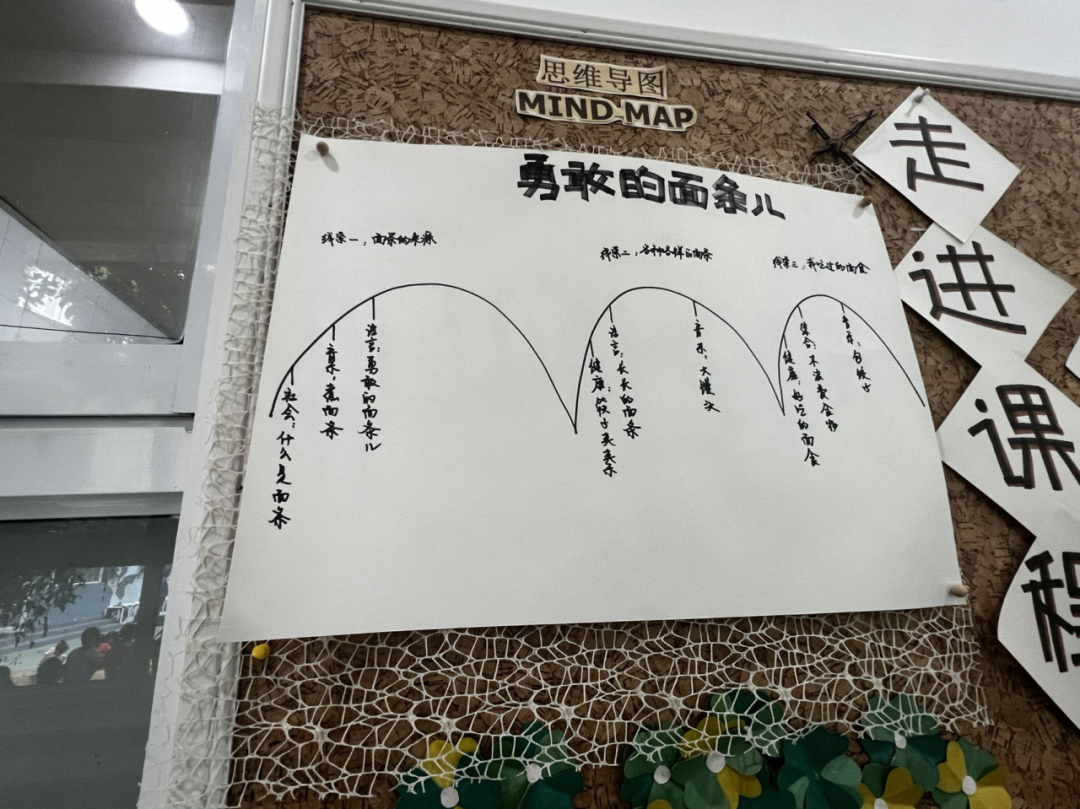 思维导图
MIND-MAP
勇敢的面条儿
线索一：面条的来源
社会：什么是面条
音乐：煮面条
语言：勇敢的面条儿
线索二：各种各样的面条
健康：筷子夹夹乐
语言：长长的面条
音乐：大馒头
线索三：我吃过的面食
健康：好吃的面食
综合：不浪费食物
音乐：包饺子
走
进
课
程